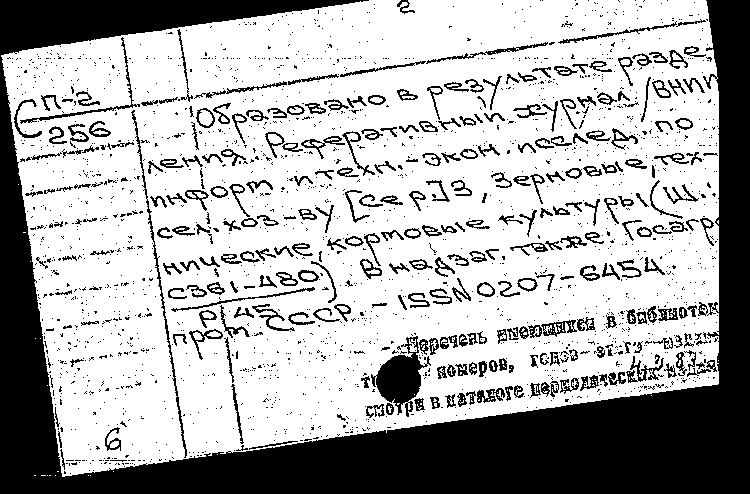 2
СП-2
256
Образовано в результате разде-
ления. Реферативный журнал / ВНИИ
информ. и техн.-экон. исслед. по
сел. хоз-ву [сер.] 3, Зерновые, тех-
нические, кормовые культуры (Ш.:
С361-480
Р/45 ). В надзаг. также: Госагро
пром СССР. - ISSN 0207-6454.
- Перечень имеющихся в библиотек
номеров, годов этого издан
смотри в каталоге периодических издан
6